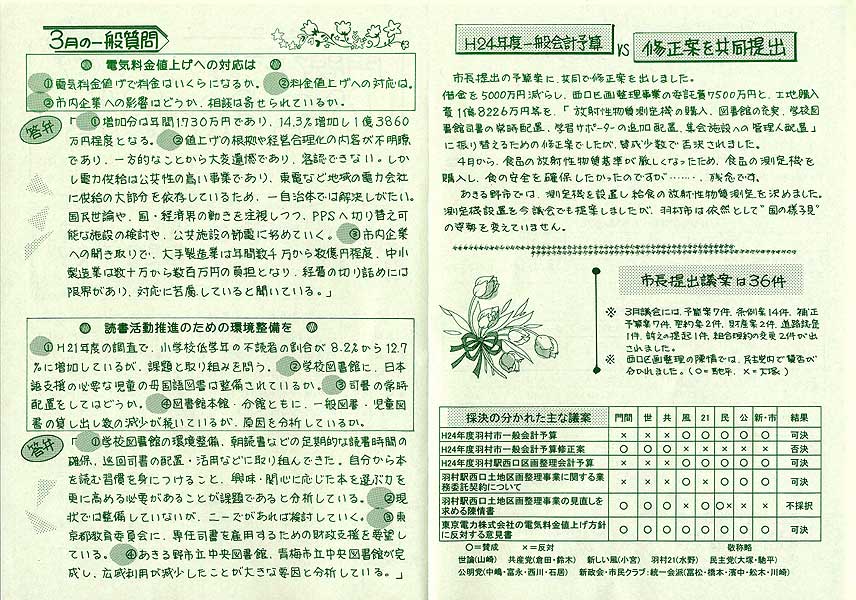 3月の一般質問
電気料金値上げへの対応は
①電気料金値げで料金はいくらになるか。②料金値上げへの対応は。
③市内企業への影響はどうか、相談は寄せられているか。
答弁
「①増加分は年間1730万円であり、14.3%増加し1億3860
万円程度となる。②値上げの根拠や経営合理化の内容が不明瞭
であり、一方的なことから大変遺憾であり、容認できない。しか
し電力供給は公共性の高い事業であり、東電など地域の電力会社
に供給の大部分を依存しているため、一自治体では解決しがたい。
国民世論や、国・経済界の動きを注視しつつ、PPSへ切り替え可
能な施設の検討や、公共施設の節電に努めていく。③市内企業
への聞き取りで、大手製造業は年間数千万から数億円程度、中小
製造業は数十万から数百万円の負担となり、経費の切り詰めには
限界があり、対応に苦慮していると聞いている。」
読書活動推進のための環境整備を
①H21年度の調査で、小学校低学年の不読者の割合が8.2%から12.7
%に増加しているが、課題と取り組みを問う。②学校図書館に、日本
語支援の必要な児童の母国語図書は整備されているか。③司書の常時
配置をしてはどうか。④図書館本館・分館ともに、一般図書・児童図
書の貸し出し数の減少が続いているが、原因を分析しているか。
答弁
「①学校図書館の環境整備、朝読書などの定期的な読書時間の
確保、巡回司書の配置・活用などに取り組んできた。自分から本
を読む習慣を身につけること、興味・関心に応じた本を選ぶ力を
更に高める必要があることが課題であると分析している。②現
状では整備していないが、ニーズがあれば検討していく。③東
京都教育委員会に、専任司書を雇用するための財政支援を要望し
ている。④あきる野市立中央図書館、青梅市立中央図書館が完
成し、広域利用が減少したことが大きな要因と分析している。」
H24年度一般会計予算 VS 修正案を共同提出
市長提出の予算案に、共同で修正案を出しました。
借金を5000万円減らし、西口区画整理事業の委託費7500万円と、土地購入
費1億8226万円等を、「放射性物質測定機の購入、図書館の充実、学校図
書館司書の常時配置、学習サポーターの追加配置、集会施設への管理人配置」
に振り替えるための修正案でしたが、賛成少数で否決されました。
4月から、食品の放射性物質基準が厳しくなったため、食品の測定機を
購入し、食の安全を確保したかったのですが………、残念です。
あきる野市では、測定機を設置し給食の放射性物質測定を決めました。
測定機設置を今議会でも提案しましたが、羽村市は依然として"国の様子見"
の姿勢を変えていません。
市長提出議案は36件
※ 3月議会には、予算案7件、条例案14件、補正
予算案7件、契約案2件、財産案2件、道路認定
1件、訴えの提起1件、組合規約の変更2件が出
されました。
※ 西口区画整理の陳情では、民主党内で賛否が
分かれました。(○=馳平、×=大塚)
採決の分かれた主な議案 門間 世 共 風 21 民 公 新・市 結果
H24年度羽村市一般会計予算 × × × ○ ○ ○ ○ ○ 可決
H24年度羽村市一般会計予算修正案 ○ ○ ○ × × × × × 否決
H24年度羽村駅西口区画整理会計予算 × × × ○ ○ ○ ○ ○ 可決
羽村駅西口土地区画整理事業に関する業
務委託契約について × × × × ○ ○ ○ ○ 可決
羽村駅西口土地区画整理事業の見直しを
求める陳情書 ○ ○ ○ × × ○× × × 不採択
東京電力株式会社の電気料金値上げ方針
に反対する意見書 ○ ○ ○ ○ ○ ○ ○ ○ 可決
○=賛成 ×=反対 敬称略
世論(山崎) 共産党(倉田・鈴木) 新しい風(小宮) 羽村21(水野) 民主党(大塚・馳平)
公明党(中嶋・富永・西川・石居) 新政会・市民クラブ:統一会派(富松・橋本・濱中・舩木・川崎)